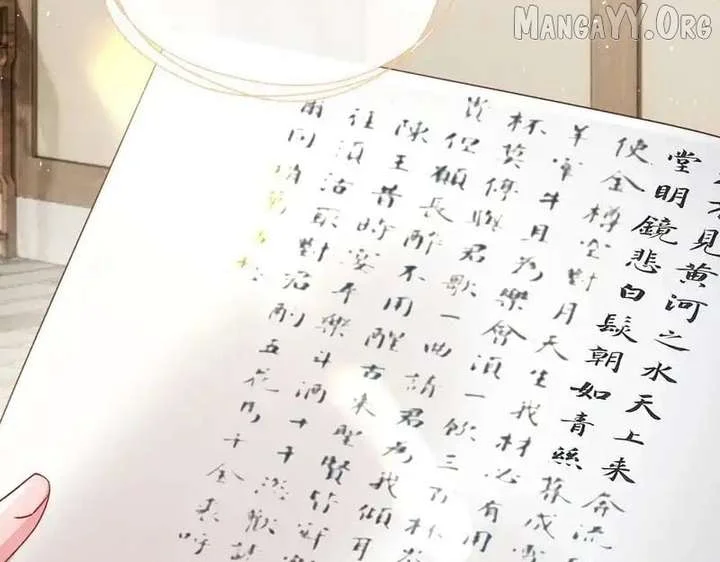 MangaYY.Org
不見黃河之水天上来奔流
堂明鏡悲白髮朝如青絲
使金樽空對月天生我材必有用
羊宰牛且为樂會須一飲三百杯
杯莫停與君歌一曲請君为我傾耳
貴但願長醉不用醒古来聖賢皆
陳王昔時宴平樂斗酒十千恣歡
往須沽取對君酌五花馬千金裘呼
爾同銷萬古